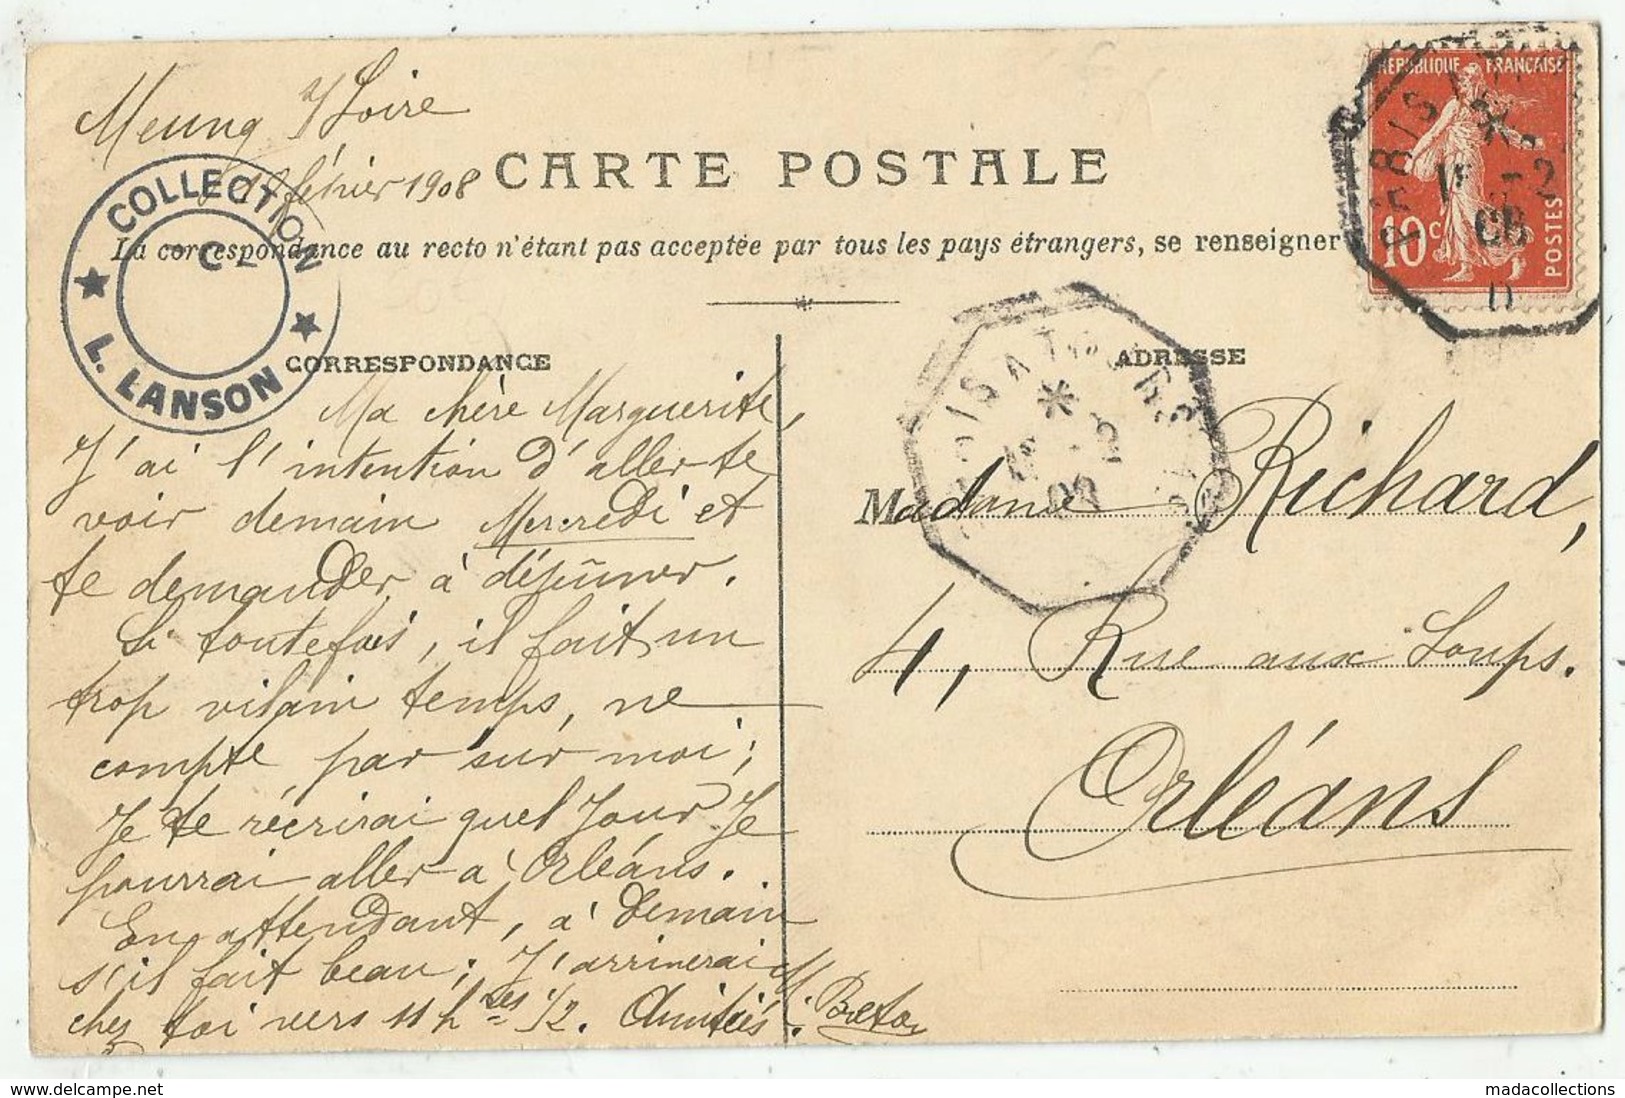 Meung s/Loire
février 1908
CARTE POSTALE
La correspondance au recto n'étant pas acceptée par tous les pays étrangers, se renseigner
RÉPUBLIQUE FRANÇAISE
10c
POSTES
COLLECTION
L. LANSON
CORRESPONDANCE
Ma chère Marguerite,
J'ai l'intention d'aller te
voir demain Mercredi et
te demander à déjeûner.
Si toutefois, il fait un
trop vilain temps, ne
compte par sur moi;
Je te récrirai quel jour Je
pourrai aller à Orléans.
En attendant, à demain
s'il fait beau; J'arriverai
chez toi vers 11 hres 1/2. Amitiés.
M. Breton
ADRESSE
Madame Richard,
4, Rue aux Loups.
Orléans
madacollections